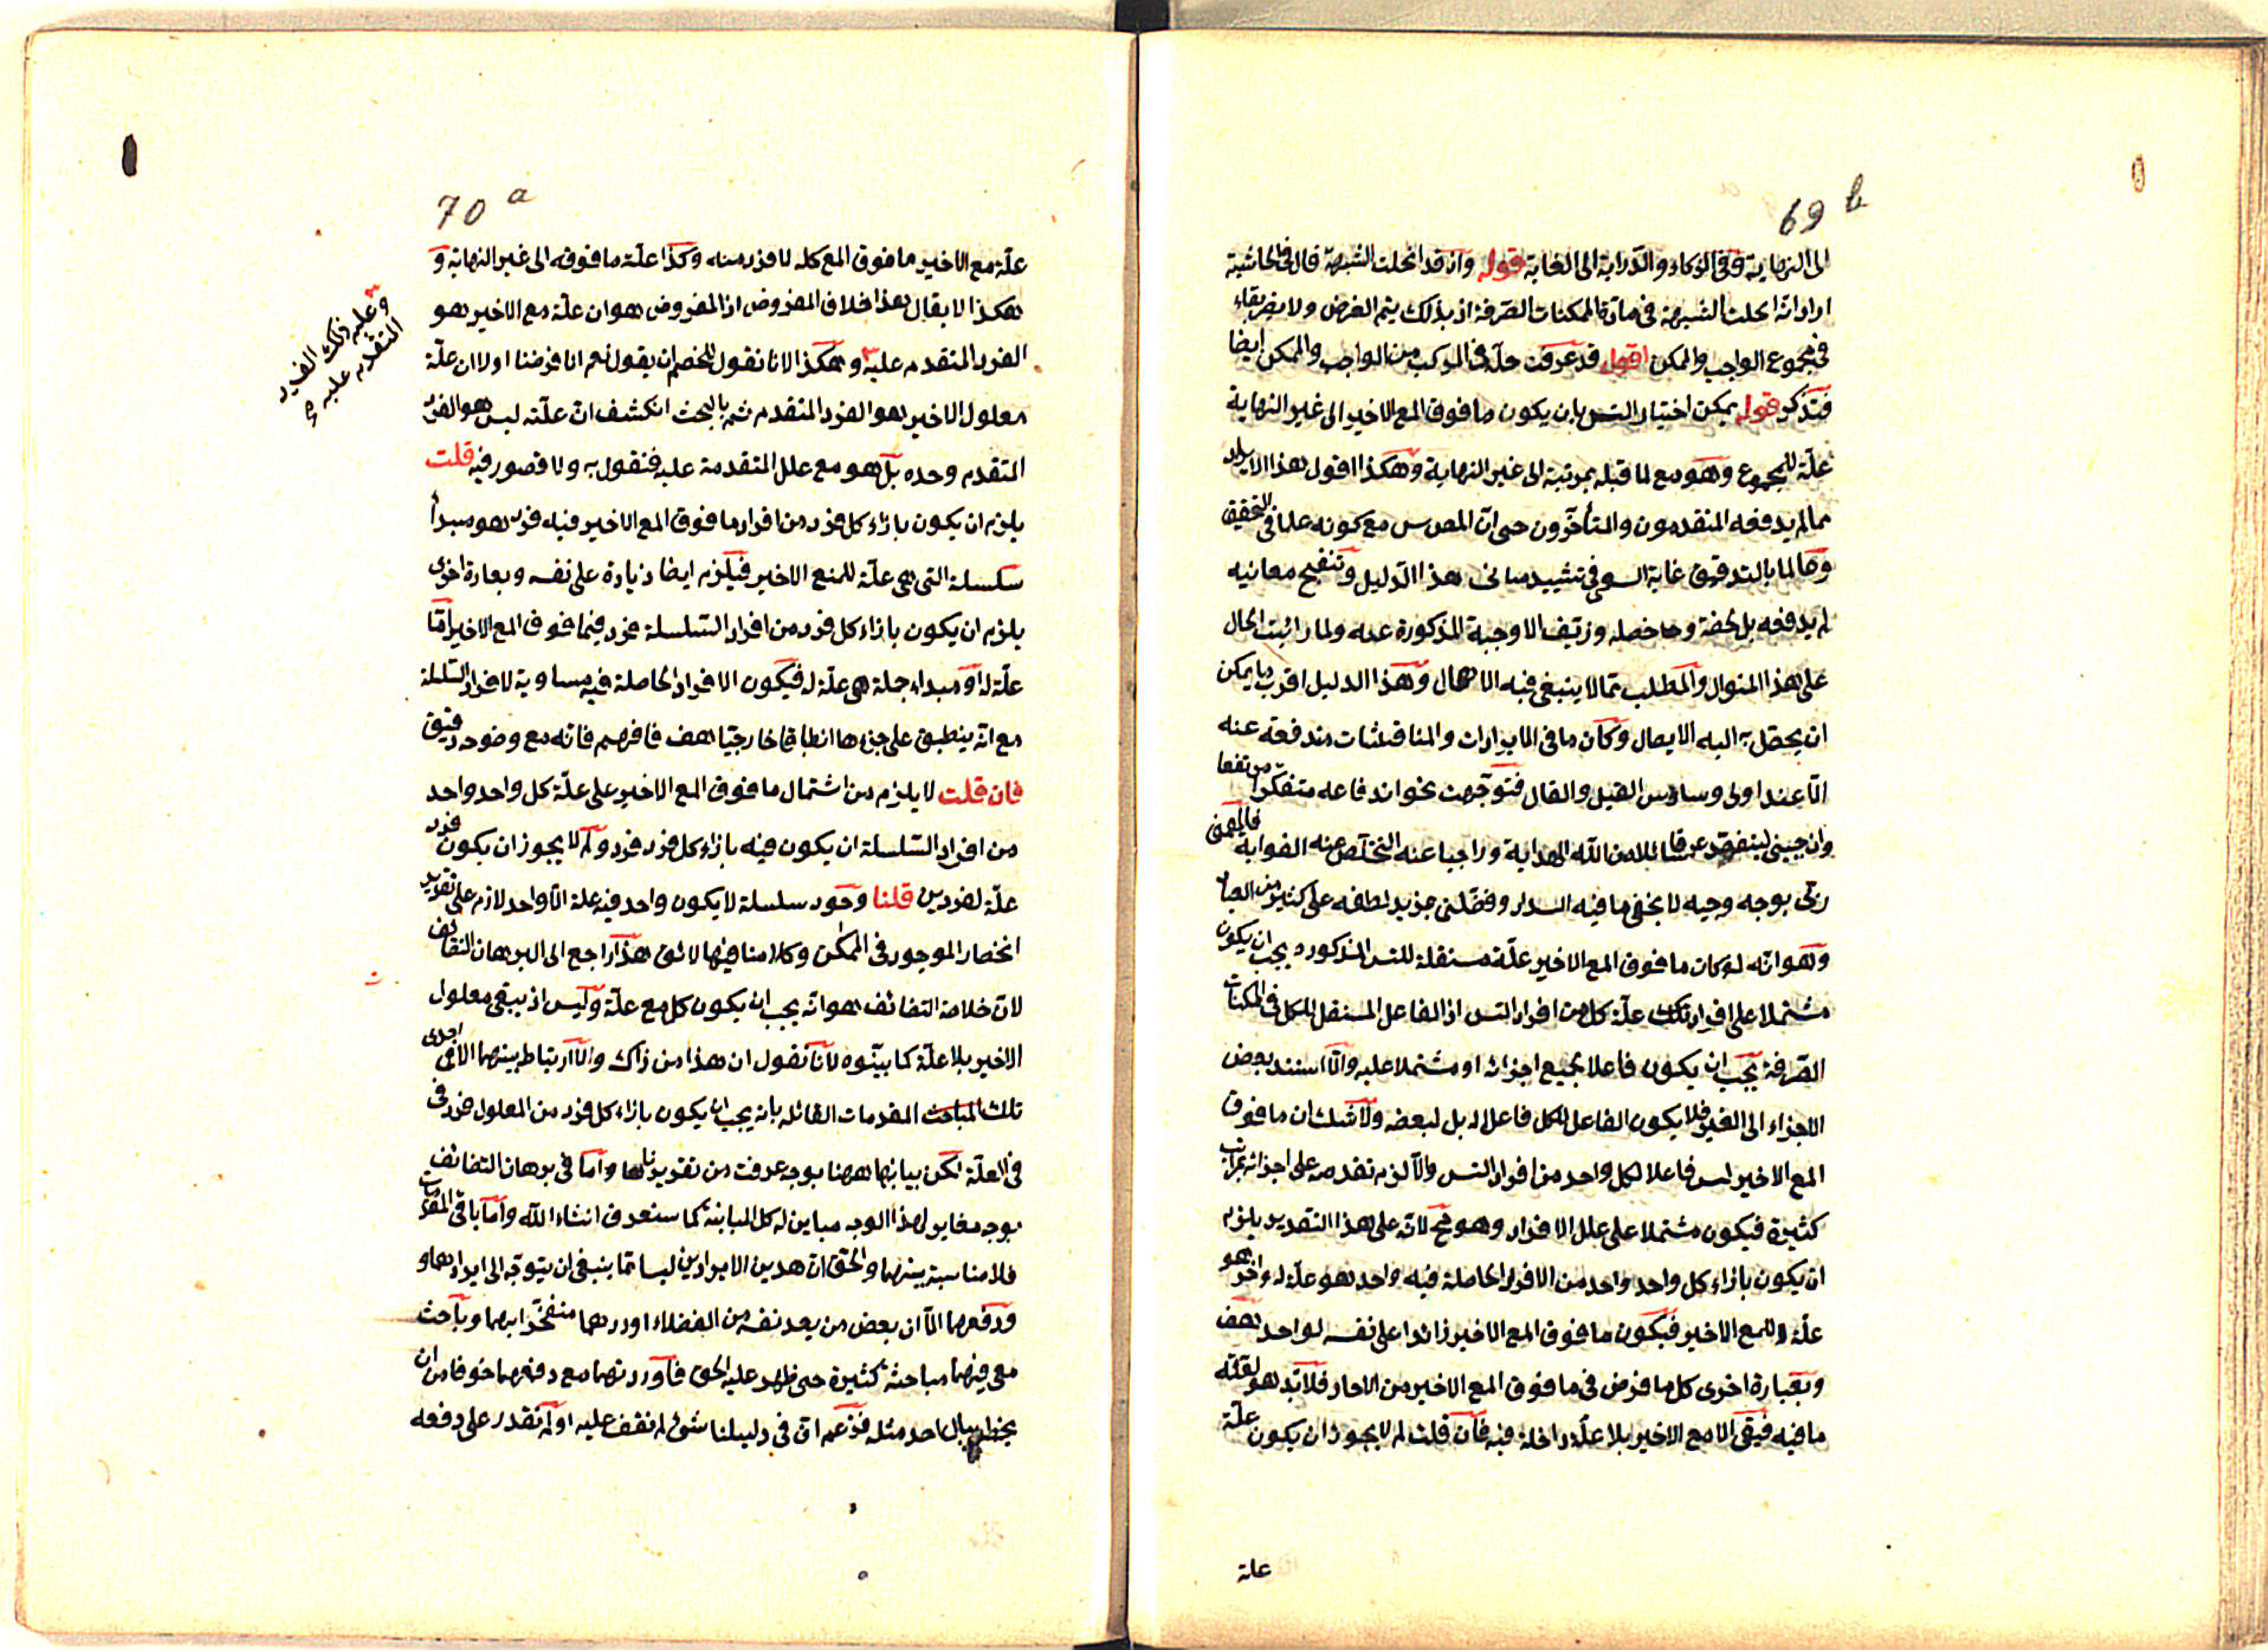 69 b
الى النهاية وفى الذكاء والدراية الى الغاية قوله وان قد انحلت الشبهة قال فى الحاشية
اراد انه انحلت الشبهة فى مادة الممكنات الصرفة اذ بذلك يتم الغرض ولا يضر بقاء
فى مجموع الواجب والممكن اقول قد عرفت حله فى المركب من الواجب والممكن ايضا
فتذكر قوله يمكن اختيار التس بان يكون ما فوق المع الاخير الى غير النهاية
علّة للمجموع وهو مع لما قبله بمرتبة الى غير النهاية وهكذا اقول هذا الايراد
مما لم يدفعه المتقدمون والمتأخرون حتى ان المص مع كونه علما فى التحقيق
وعالما بالتدقيق غاية السعى فى تشييد مبانى هذا الدليل وتنقيح معانيه
لم يدفعه بل لخصه وحاصله وزيف الاوجبة المذكورة عنه ولما رائيت الحال
على هذا المنوال والمطلب مما لا ينبغى فيه الاهمال وهذا الدليل اقرب ما يمكن
ان يحصل به اليه الايصال وكان ما فى الايرادات والمناقشات مندفعة عنه
الا عند اولى وساوس القيل والقال فتوجهت نحو اندفاعه متفكرا مرتفعا
وان جبينى ليتفصد عرقا سائلا من الله الهداية وراجيا عنه التخلص عنه الغواية فالهمنى
ربى بوجه وجيه لا يخفى ما فيه السداد وفضلنى مزيد لطفه على كثير من العباد
وهو انه لو كان ما فوق المع الاخير علّة مستقلة للتس المذكورة يجب ان يكون
مشتملا على افراد تكون علّة كل من افراد التس اذ الفاعل المستقل للكل فى الممكنات
الصرفة يجب ان يكون فاعلا بجميع اجزائه او مشتملا عليه والا استند بعض
الاجزاء الى الغير فلا يكون الفاعل للكل فاعلا له بل لبعضه ولا شك ان ما فوق
المع الاخير ليس فاعلا لكل واحد من افراد التس والا لزم تقدمه على اجزائه بمراتب
كثيرة فيكون مشتملا على علل الافراد وهو مح لانه على هذا التقدير يلزم
ان يكون بازاء كل واحد واحد من الافراد الحاصلة فيه واحد هو علّة له واخر هو
علّة للمع الاخير فيكون ما فوق المع الاخير زائدا على نفسه لواحد هف
وبعبارة اخرى كل ما فرض فى ما فوق المع الاخير من الاحاد فلا بد هو لعلّة
ما فيه فيبقى الا مع الاخير بلا علّة داخلة فيه فان قلت لم لا يجوز ان يكون علّة
علة
70 a
علّة مع الاخير ما فوق المع كله لا فرد منه وكذا علّة ما فوقه الى غير النهاية و
هكذا لا يقال هذا خلاف المفروض اذ المفروض هو ان علّة مع الاخير هو
الفرد المتقدم عليه وهكذا لانا نقول للخصم ان يقول نعم انا فرضنا اولا ان علّة
معلول الاخير هو الفرد المتقدم ثم بالبحث انكشف ان علّته ليس هو الفرد
المتقدم وحده بل هو مع علل المتقدمة عليه فنقول به ولا قصور فيه قلت
يلزم ان يكون بازاء كل فرد من افراد ما فوق المع الاخير فيه فرد هو مبدأ
سلسلة التى هى علّة للمع الاخير فيلزم ايضا زيادة على نفسه وبعبارة اخرى
يلزم ان يكون بازاء كل فرد من افراد السلسلة فرد فيما فوق المع الاخير اما
علّة له او مبداء جملة هى علّة له فيكون الافراد الحاصلة فيه مساوية لافراد السلسلة
مع انه ينطبق على جزءها انطباقا خارجيا هف فافهم فانه مع وضوحه دقيق
فان قلت لا يلزم من اشتمال ما فوق المع الاخير على علّة كل واحد واحد
من افراد السلسلة ان يكون فيه بازاء كل فرد فرد ولم لا يجوز ان يكون فرد
علّة لفردين قلنا وجود سلسلة لا يكون واحد فيه علة الا واحد لازم على تقدير
انحصار الموجود فى الممكن وكلامنا فيها لا يق هذا راجع الى البرهان التضائف
لان خلاصة التضائف هو انه يجب ان يكون كل مع علّة وليس اذ يبقى معلول
الاخير بلا علّة كما بينوه لانا نقول ان هذا من ذاك والا ارتباط بينهما الا فى اجرى
تلك المباحث المقدمات القائلة بانه يجب ان يكون بازاء كل فرد من المعلول فرد فى
فى العلّة لكن بيانها ههنا بوجه عرفت من تقريرناها واما فى برهان التضائف
بوجه مغاير لهذا الوجه مباين له كل المباينة كما ستعرف انشاء الله واما باقى المقدمات
فلا مناسبة بينهما والحق ان هذين الايرادين ليسا مما ينبغى ان يتوجه الى ايرادهما و
ودفعهما الا ان بعض من يعد نفسه من الفضلاء اوردهما متفخرا بهما وباحث
معى فيهما مباحثة كثيرة حتى ظهر عليه الحق فاوردتهما مع دفعهما خوفا من ان
يخطر ببال احد مثله فزعم ان فى دليلنا شئ لم نقف عليه او لم نقدر على دفعه
وعليه ذلك الفرد
المتقدم عليه